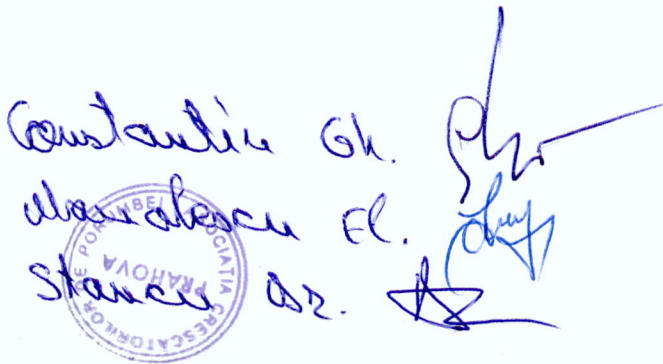 Constantin Gh.
Manolescu El.
Stanciu
ASOCIATIA CRESCATORILOR DE PORUMBEI
PRAHOVA